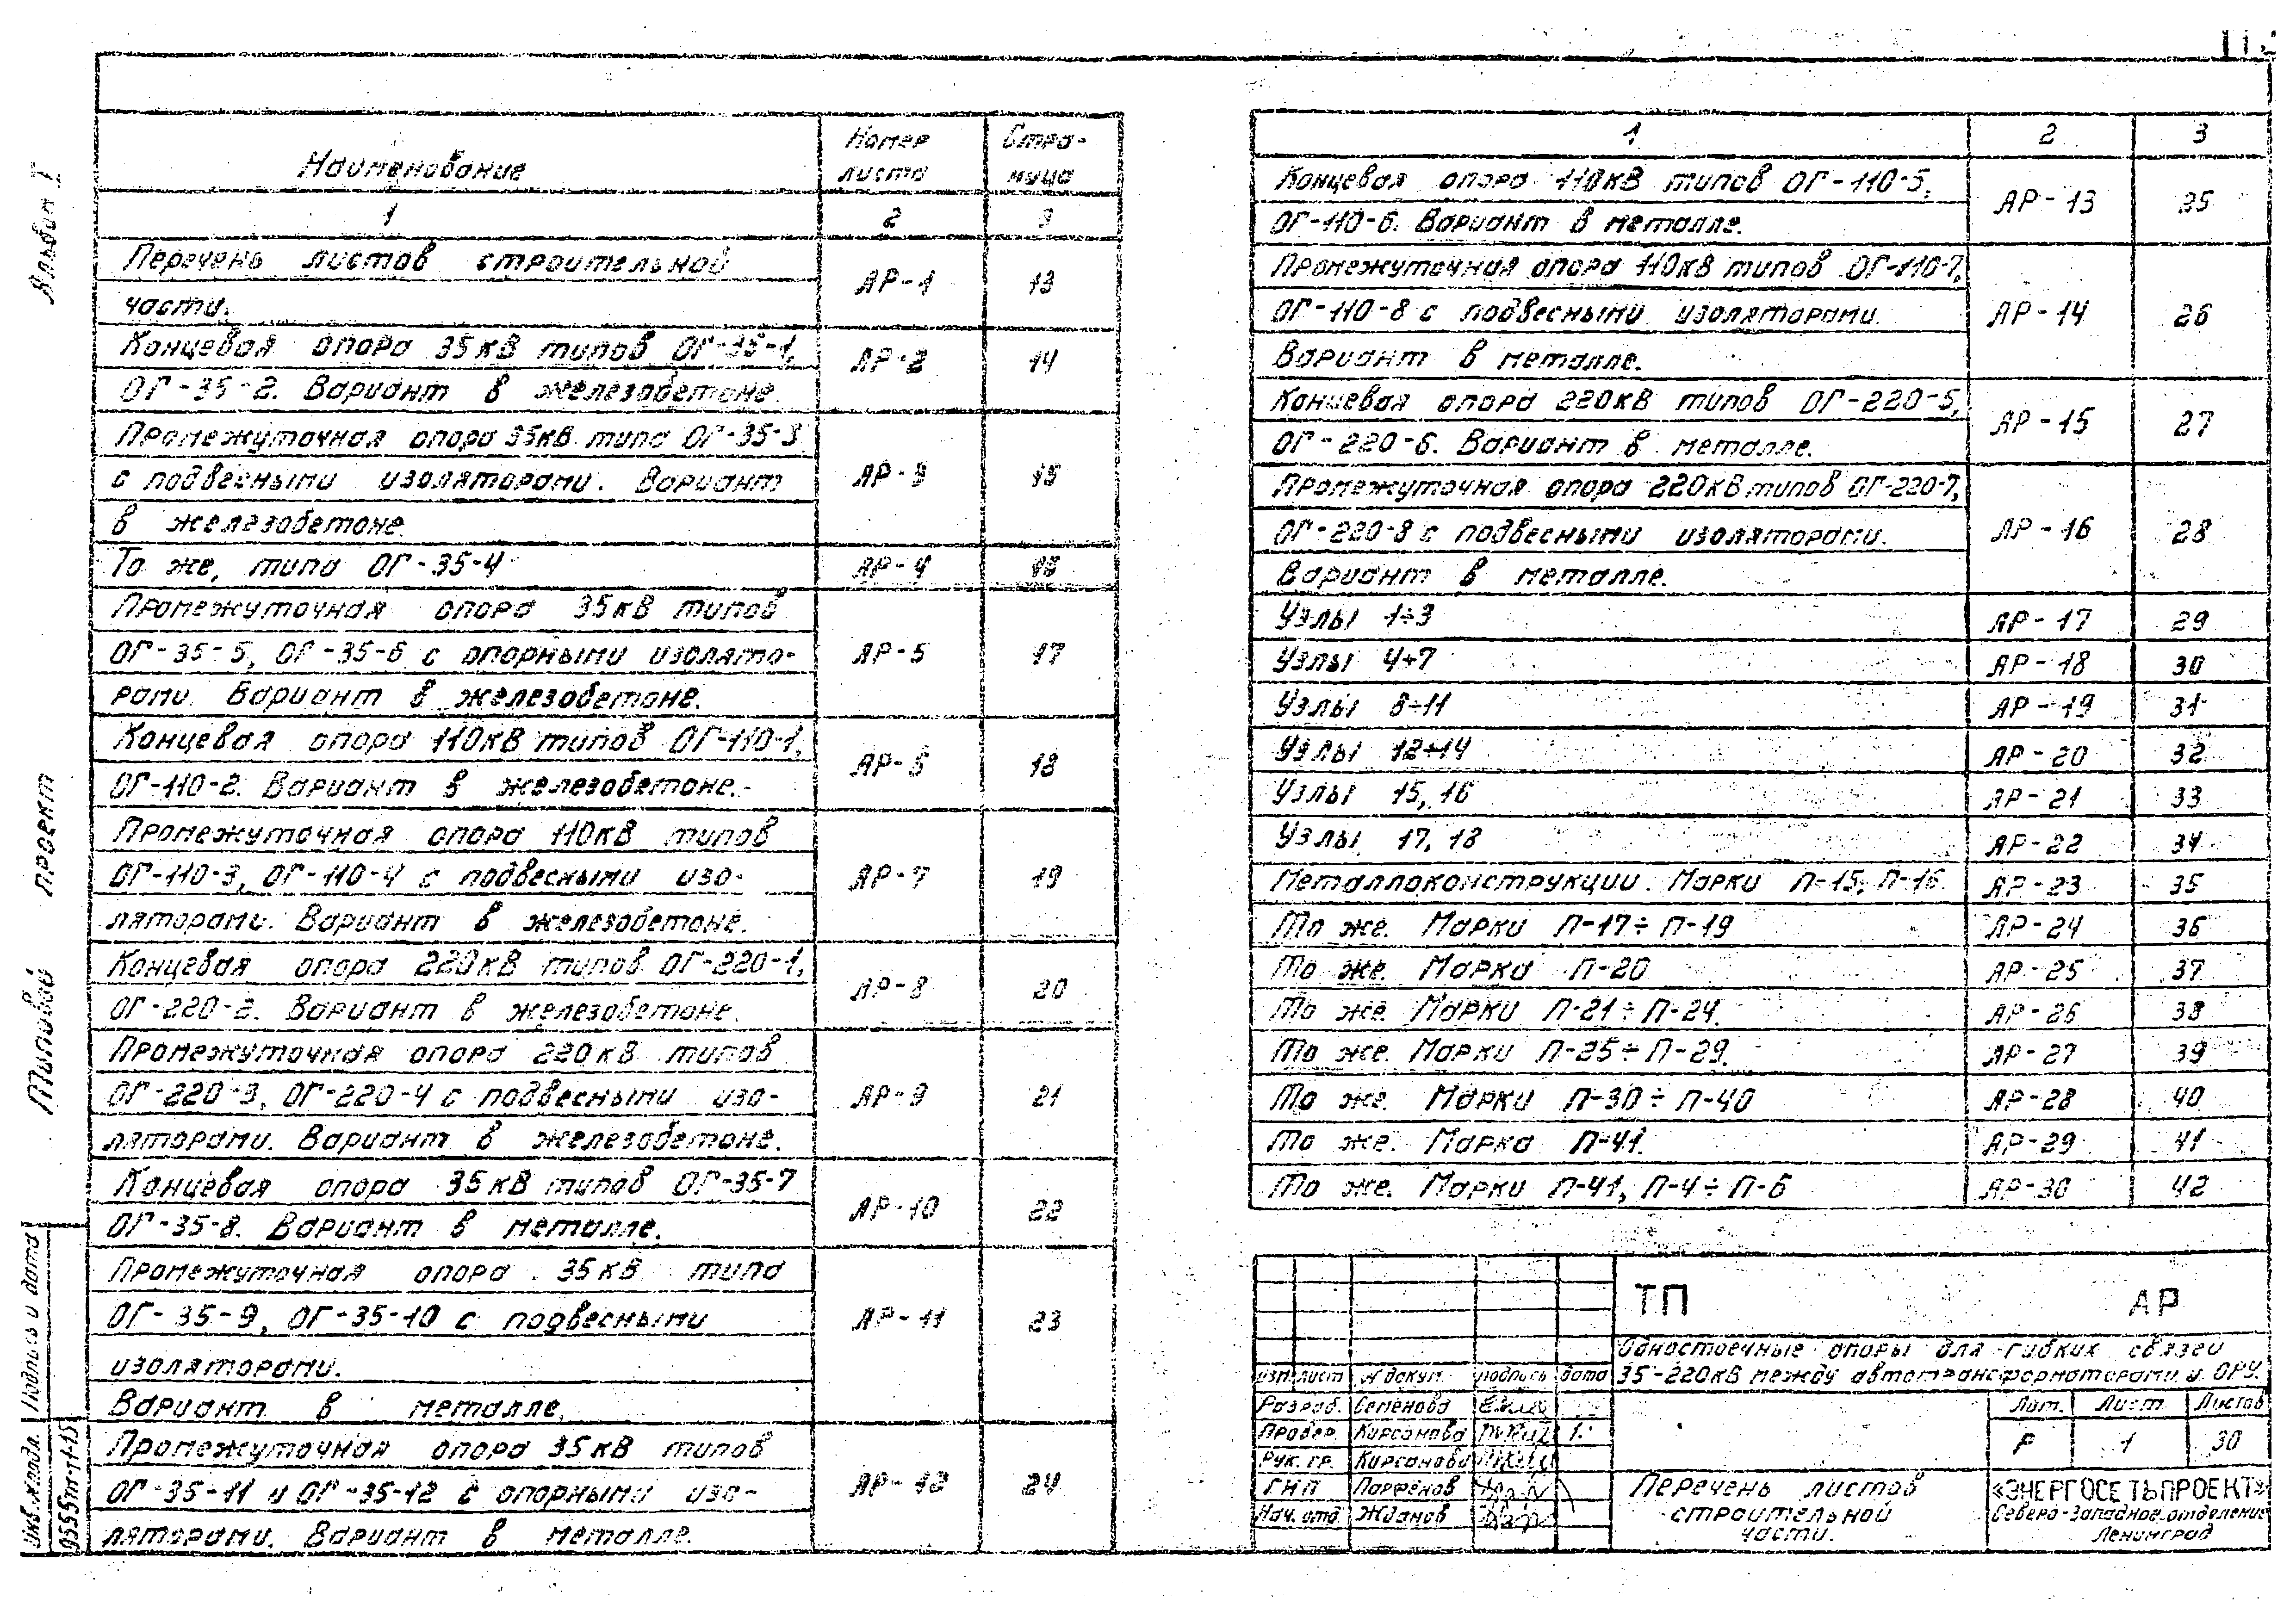 Альбом I
Типовой проект
Наименование
Номер листа
Стра- ница
1 2 3
Перечень листов строительной
части.
АР-1 13
Концевая опора 35кВ типов ОГ-35-1,
ОГ-35-2. Вариант в железобетоне.
АР-2 14
Промежуточная опора 35кВ типа ОГ-35-3
с подвесными изоляторами. Вариант
в железобетоне.
АР-3 15
То же, типа ОГ-35-4 АР-4 16
Промежуточная опора 35кВ типов
ОГ-35-5, ОГ-35-6 с опорными изолято-
рами. Вариант в железобетоне.
АР-5 17
Концевая опора 110кВ типов ОГ-110-1,
ОГ-110-2. Вариант в железобетоне.
АР-6 18
Промежуточная опора 110кВ типов
ОГ-110-3, ОГ-110-4 с подвесными изо-
ляторами. Вариант в железобетоне.
АР-7 19
Концевая опора 220кВ типов ОГ-220-1,
ОГ-220-2. Вариант в железобетоне.
АР-8 20
Промежуточная опора 220кВ типов
ОГ-220-3, ОГ-220-4 с подвесными изо-
ляторами. Вариант в железобетоне.
АР-9 21
Концевая опора 35кВ типов ОГ-35-7
ОГ-35-8. Вариант в металле.
АР-10 22
Промежуточная опора 35кВ типа
ОГ-35-9, ОГ-35-10 с подвесными
изоляторами.
Вариант в металле.
АР-11 23
Промежуточная опора 35кВ типов
ОГ-35-11 и ОГ-35-12 с опорными изо-
ляторами. Вариант в металле.
АР-12 24
1 2 3
Концевая опора 110кВ типов ОГ-110-5,
ОГ-110-6. Вариант в металле.
АР-13 25
Промежуточная опора 110кВ типов ОГ-110-7,
ОГ-110-8 с подвесными изоляторами.
Вариант в металле.
АР-14 26
Концевая опора 220кВ типов ОГ-220-5,
ОГ-220-6. Вариант в металле.
АР-15 27
Промежуточная опора 220кВ типов ОГ-220-7,
ОГ-220-8 с подвесными изоляторами.
Вариант в металле.
АР-16 28
Узлы 1÷3 АР-17 29
Узлы 4÷7 АР-18 30
Узлы 8÷11 АР-19 31
Узлы 12÷14 АР-20 32
Узлы 15, 16 АР-21 33
Узлы 17, 18 АР-22 34
Металлоконструкции. Марки П-15, П-16. АР-23 35
То же. Марки П-17÷П-19 АР-24 36
То же. Марка П-20 АР-25 37
То же. Марки П-21÷П-24. АР-26 38
То же. Марки П-25÷П-29. АР-27 39
То же. Марки П-30÷П-40 АР-28 40
То же. Марка П-41. АР-29 41
То же. Марки П-41, П-4÷П-6 АР-30 42
ТП АР
Одностоечные опоры для гибких связей
35-220кВ между автотрансформаторами и ОРУ.
Изм. лист № докум. подпись дата
Разраб. Семенова
Провер. Кирсанова
Рук. гр. Кирсанова
ГИП Парфенов
Нач. отд. Жданов
Лит. Лист Листов
Р 1 30
Перечень листов
строительной
части.
«ЭНЕРГОСЕТЬПРОЕКТ»
Северо-Западное отделение
Ленинград
Подпись и дата
Инв. № подл.
9555тм-т1-15